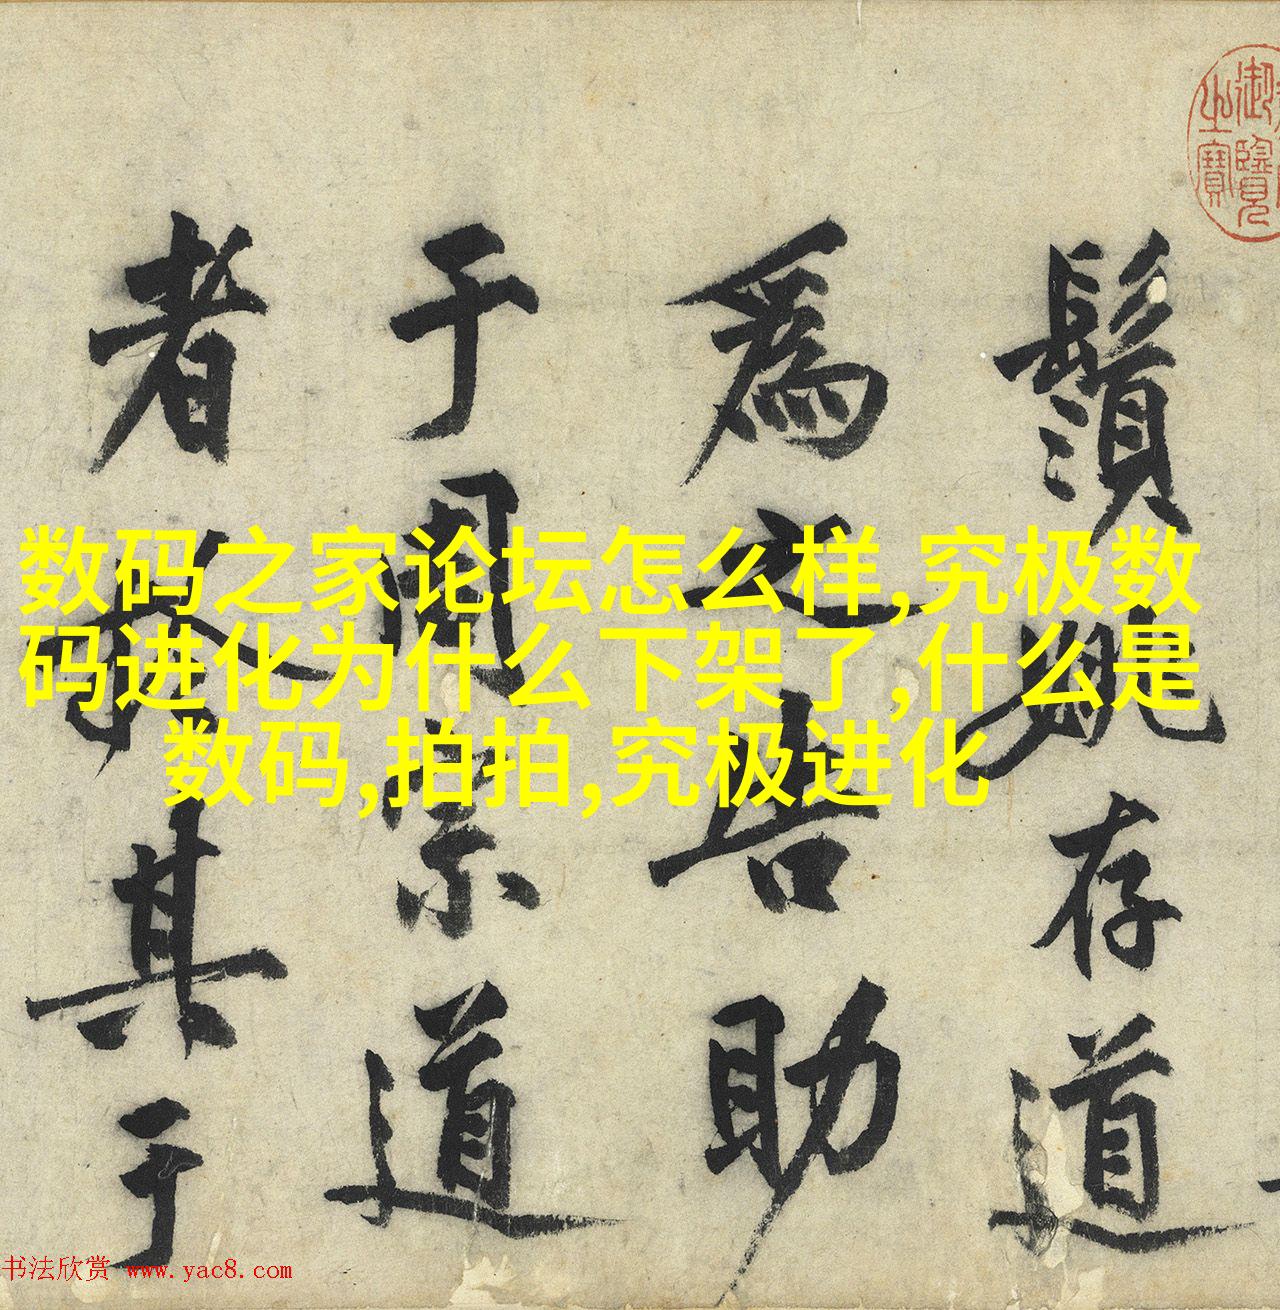 御覽
之寶
鬚存道
為之告助
于周宗道
者其于
数码之家论坛怎么样,究极数
码进化为什么下架了,什么是
数码,拍拍,究极进化
书法欣赏 www.yac8.com